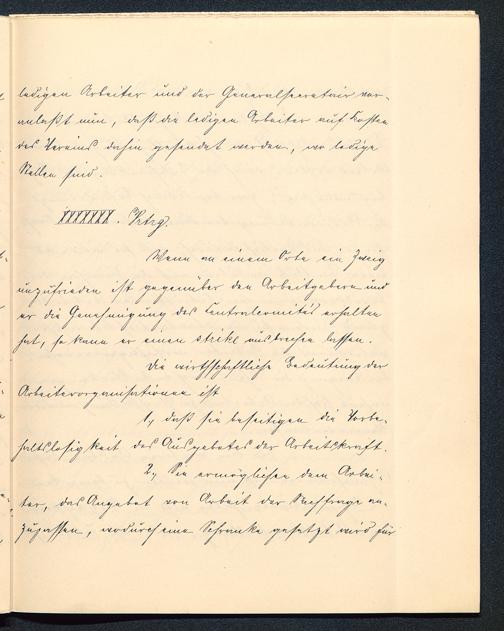 ledigen Arbeiter und der Generalsecretair ver-
anlaßt nun, daß die ledigen Arbeiter auf Kosten
des Vereins dahin gesendet werden, wo ledige
Stellen sind.
XXXXXXX.
Wenn an einem Orte ein Zweig
unzufrieden ist gegenüber den Arbeitgebern und
er die Genehmigung des Centralcomités erhalten
hat, so kann er einen strike ausbrechen lassen.
Die wirthschaftliche Bedeutung der
Arbeiterorganisationen ist
1, daß sie beseitigen die Vorbe-
haltslosigkeit des Ausgebotes der Arbeitskraft.
2, Sie ermöglichen dem Arbei-
ter, das Angebot von Arbeit der Nachfrage an-
zupassen, wodurch eine Schranke gesetzt wird für